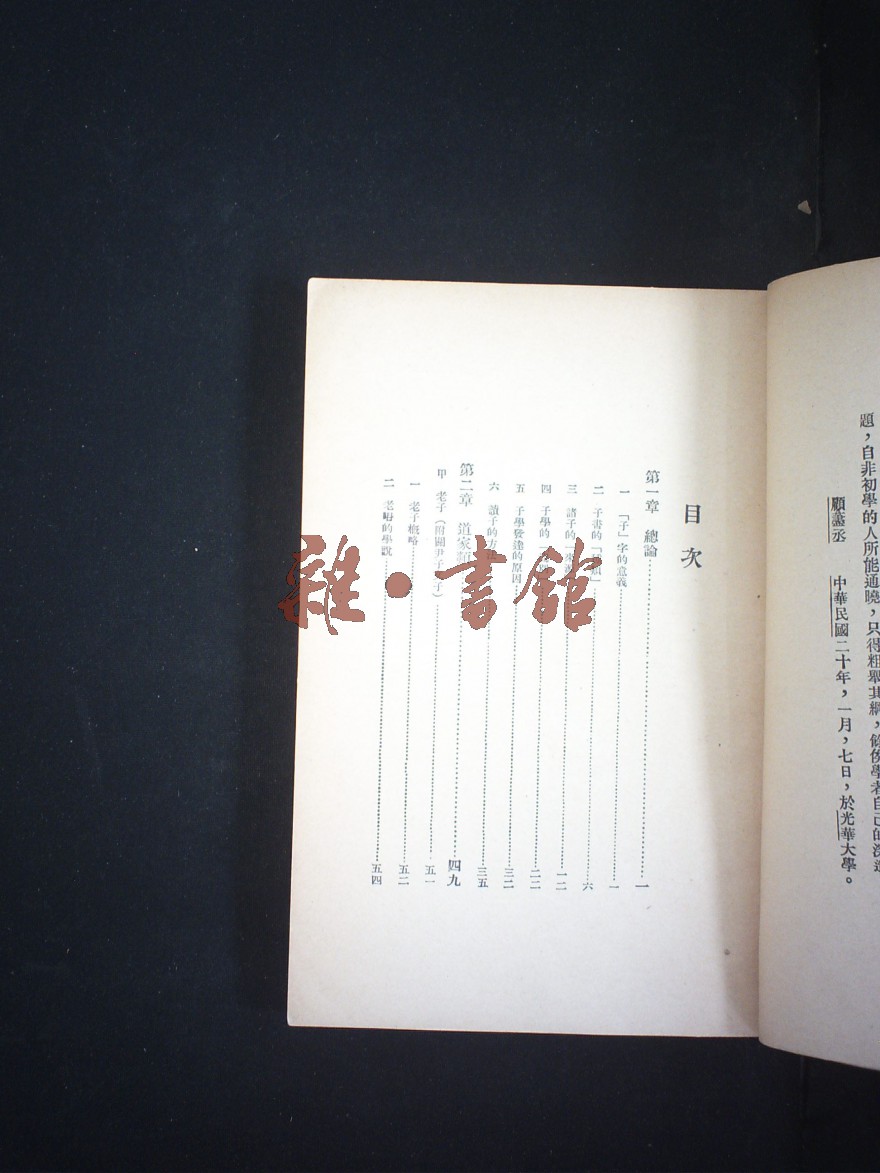 題，自非初學的人所能通曉，只得粗舉其綱，餘俟學者自己的深造
顧藎丞 中華民國二十年，一月，七日，於光華大學。
目次
第一章 總論 一
一 「子」字的意義 一
二 子書的 六
三 諸子的 一二
四 子學的 二二
五 子學發達的原因 三二
六 讀子的方 三五
第二章 道家 四九
甲 老子（附關尹子 子） 五一
一 老子概略 五二
二 老 的學說 五四
雜·書館